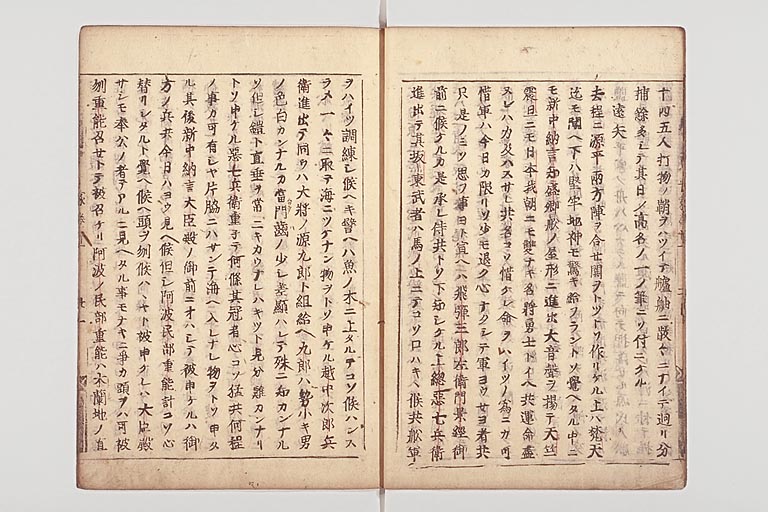 十四五人打物ノ鞘ヲハツイテ艫舳ニ散々ニナイテ廻リ分
捕餘多シテ其日ノ高名ノ一ノ筆ニソ付ニケル
遠矢
去程ニ源平兩方陣ヲ合セ閧ヲトツトソ作リケル上ハ梵天
迄モ聞ヘ下ハ堅牢地神モ驚キ給フラントソ覺ヘタル中ニ
モ新中納言知盛卿舩ノ屋形ニ進出大音聲ヲ揚テ天竺
震旦ニモ日本我朝ニモ雙ナキ名將勇士トイヘ共運命盡
ヌレハ力及ハスサレ共名コソ惜ケレ命ヲハイツノ爲ニカ可
惜軍ハ今日カ限リソ少モ退ク心ナクシテ軍ヨウセヨ者共
只是ノミソ思フ事ヨト宣ヘハ飛彈三郎左衛門景經御
前ニ候ケルカ是承レ侍共トソ下知シケル上総惡七兵衛
進出テ其坂東武者ハ馬ノ上ニテコソ口ハキヽ候共舩軍
ヲハイツ調練シ候ヘキ譬ヘハ魚ノ木ニ上タルテコソ候ハンス
ラメ一々ニ取テ海ニツケナン物ヲトソ申ケル越中次郎兵
衛進出テ同クハ大將ノ源九郎ト組給ヘ九郎ハ勢小キ男
ノ色白カンナルカ當門齒ノ少シ差顯ハレテ殊ニ知カンナル
ソ但シ鎧ト直垂ヲ常ニキカウナレハキツト見分難カンナリ
トソ申ケル惡七兵衛重子テ何條其冠者心コソ猛共何程
ノ事カ可有シヤ片脇ニハサンテ海ヘ入レナン物ヲトソ申タ
ル其後新中納言大臣殿ノ御前ニオハシテ被申ケルハ御
方ノ兵共今日ハヨウ見ヘ候但シ阿波民部重能計コソ心
替リシタルト覺ヘ候ヘ頭ヲ刎候ハヽヤト被申ケレハ大臣殿
サシモ奉公ノ者テアルニ見ヘタル事モナキニ爭カ頭ヲハ可被
刎重能召セトテ被召ケリ阿波ノ民部重能ハ木蘭地ノ直